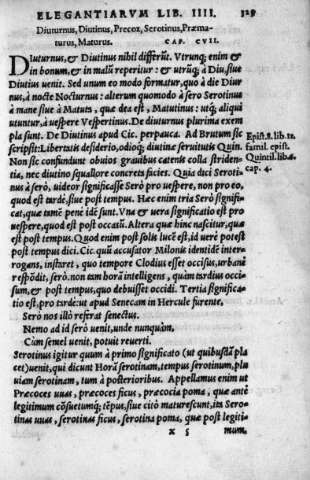 ELEGANTIARVM LIB. IIII. 329
Diuturnus, Diutinus, Precox, Serotinus, Præma-
turus, Maturus. CAP. CVII.
DIuturnus, & Diutinus nibil differũt. Vtrunq; enim &
in bonum, & in malũ reperitur: & utrũq; à Diu, siue
Diutius uenit. Sed unum eo modo formatur, quo à die Diur
nus, à nocte Nocturnus: alterum quomodo à sero Serotinus
à mane siue à Matuta, quæ dea est, Matutinus: utq́; aliqui
utuntur, à uespere Vespertinus. De diuturnus plurima exem
pla sunt. De Diutinus apud Cic. perpauca. Ad Brutum sic
scripsit: Libertatis desiderio, odioq́; diutinæ seruitutis Quin.
Non sic confundunt obuios grauibus catenis colla striden-
tia, nec diutino squallore concreti facies. Quia dici Seroti-
nus à serò, uideor significasse Serò pro uespere, non pro eo,
quod est tardè, siue post tempus. Hæc enim tria Serò signifi-
cat, quæ tamẽ penè idẽ sunt. Vna & uera significatio est pro
uespere, quod est post occasũ. Altera quæ hinc nascitur, quæ
est post tempus. Quod enim post solis lucẽ est, id uerè potest
post tempus dici. Cic. quũ accusator Milonis identidẽ inter-
rogans, instaret, quo tempore Clodius esset occisus, urbanè
respõdit, serò. non eam horã intelligens, quàm tardius occi-
sum, & post tempus, quo debuisset occidi. Tertia significa-
tio est, pro tardè: ut apud Senecam in Hercule furente.
Serò nos illò referat senectus.
Nemo ad id serò uenit, unde nunquàm,
Cùm semel uenit, potuit reuerti.
Serotinus igitur quùm à primo significato (ut quibusdã pla
cet) uenit, qui dicunt Horã serotinam, tempus serotinum, plu
uiam serotinam, tum à posterioribus. Appellamus enim ut
Præcoces uuas, præcoces ficus, præcocia poma, quæ ante
legitimum cõsuetumq́; tẽpus, siue citò maturescunt, ita Sero-
tinas uuas, serotinas ficus, serotina poma, quæ post legiti-
x 5 mum
Epist. 8. lib. 11.
famil. epist.
Quintil. lib. 8.
cap. 4.